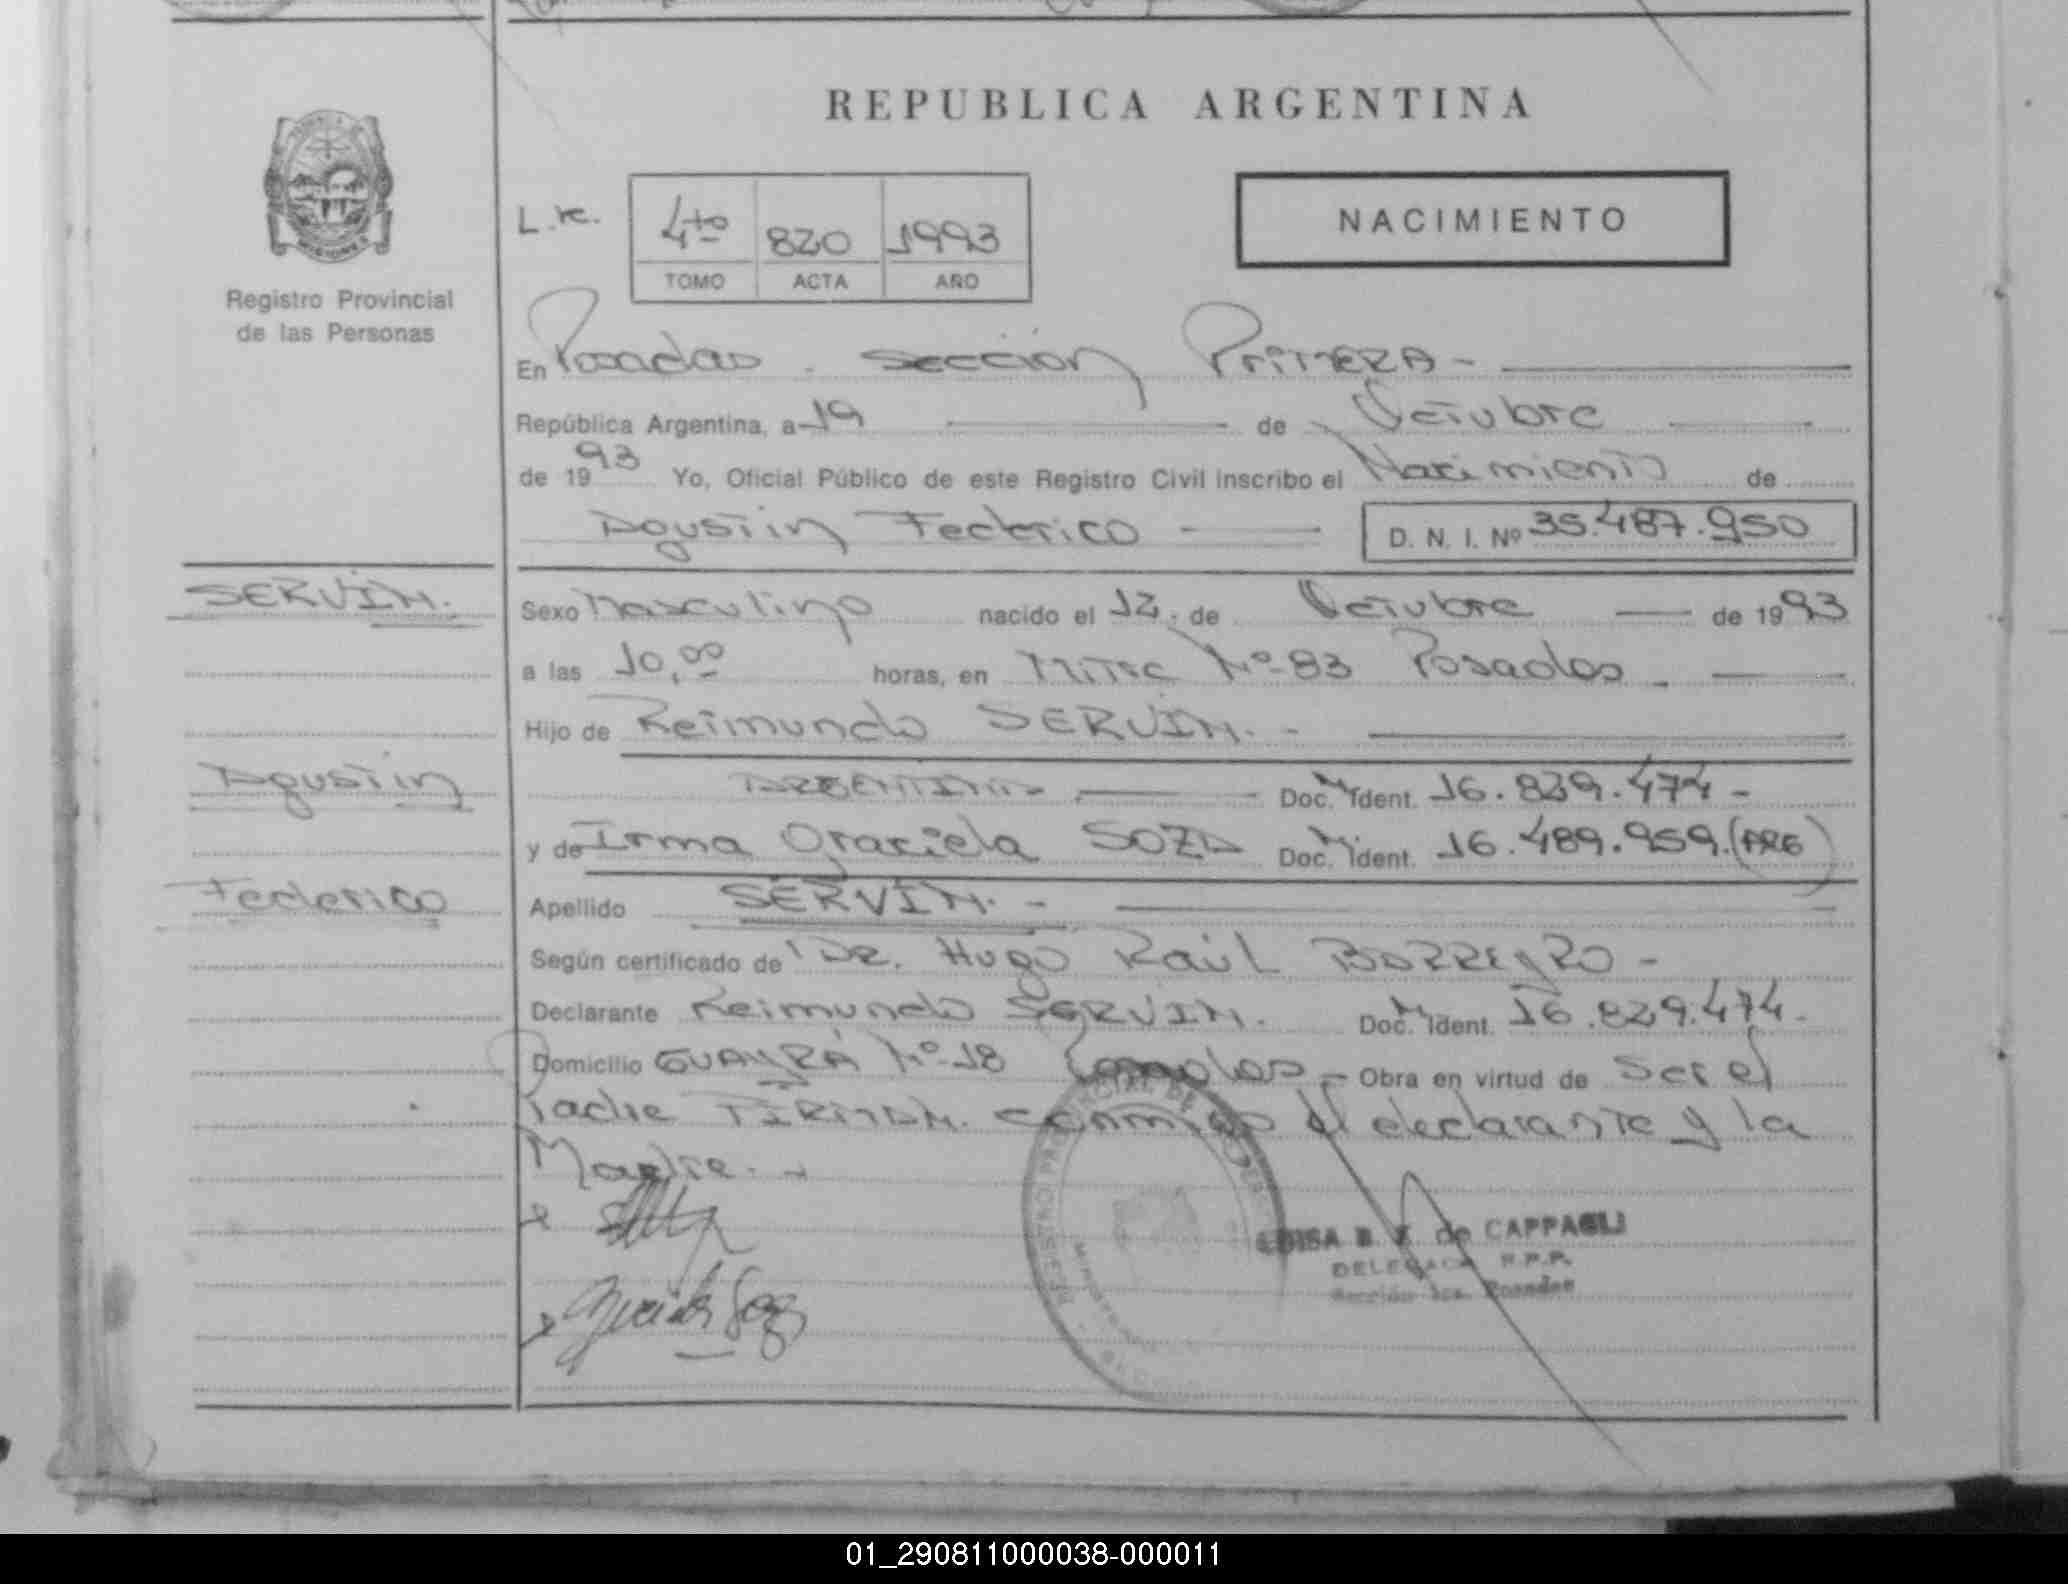 REPUBLICA ARGENTINA
L.re.
4to 820 1993
TOMO ACTA AÑO
NACIMIENTO
Registro Provincial
de las Personas
En Posadas. sección Primera -
República Argentina, a 19 de Octubre
de 1993 Yo, Oficial Público de este Registro Civil inscribo el Nacimiento de
Agustin Federico D. N. I. Nº 35.487.950
SERVIN.
Sexo Masculino nacido el 12. de Octubre de 1993
a las 10,00 horas, en Mitre Nº 83 Posadas.
Hijo de Reimundo SERVIN. -
Agustin
ARGENTINO Doc. Ident. 16.829.474 -
y de Irma Graciela SOZA Doc. Ident. 16.489.959. (ARG)
Federico
Apellido SERVIN. -
Según certificado de Dr. Hugo Raúl BORREYRO -
Declarante Reimundo SERVIN. Doc. Ident. 16.829.474.
Domicilio GUAYRÁ Nº 18 Posadas - Obra en virtud de Ser el
Padre FIRMAN. conmigo el declarante y la
Madre. -
LUISA B de CAPPAGLI
DELEGADA R.P.P.
Sección 1ra. Posadas
01_290811000038-000011